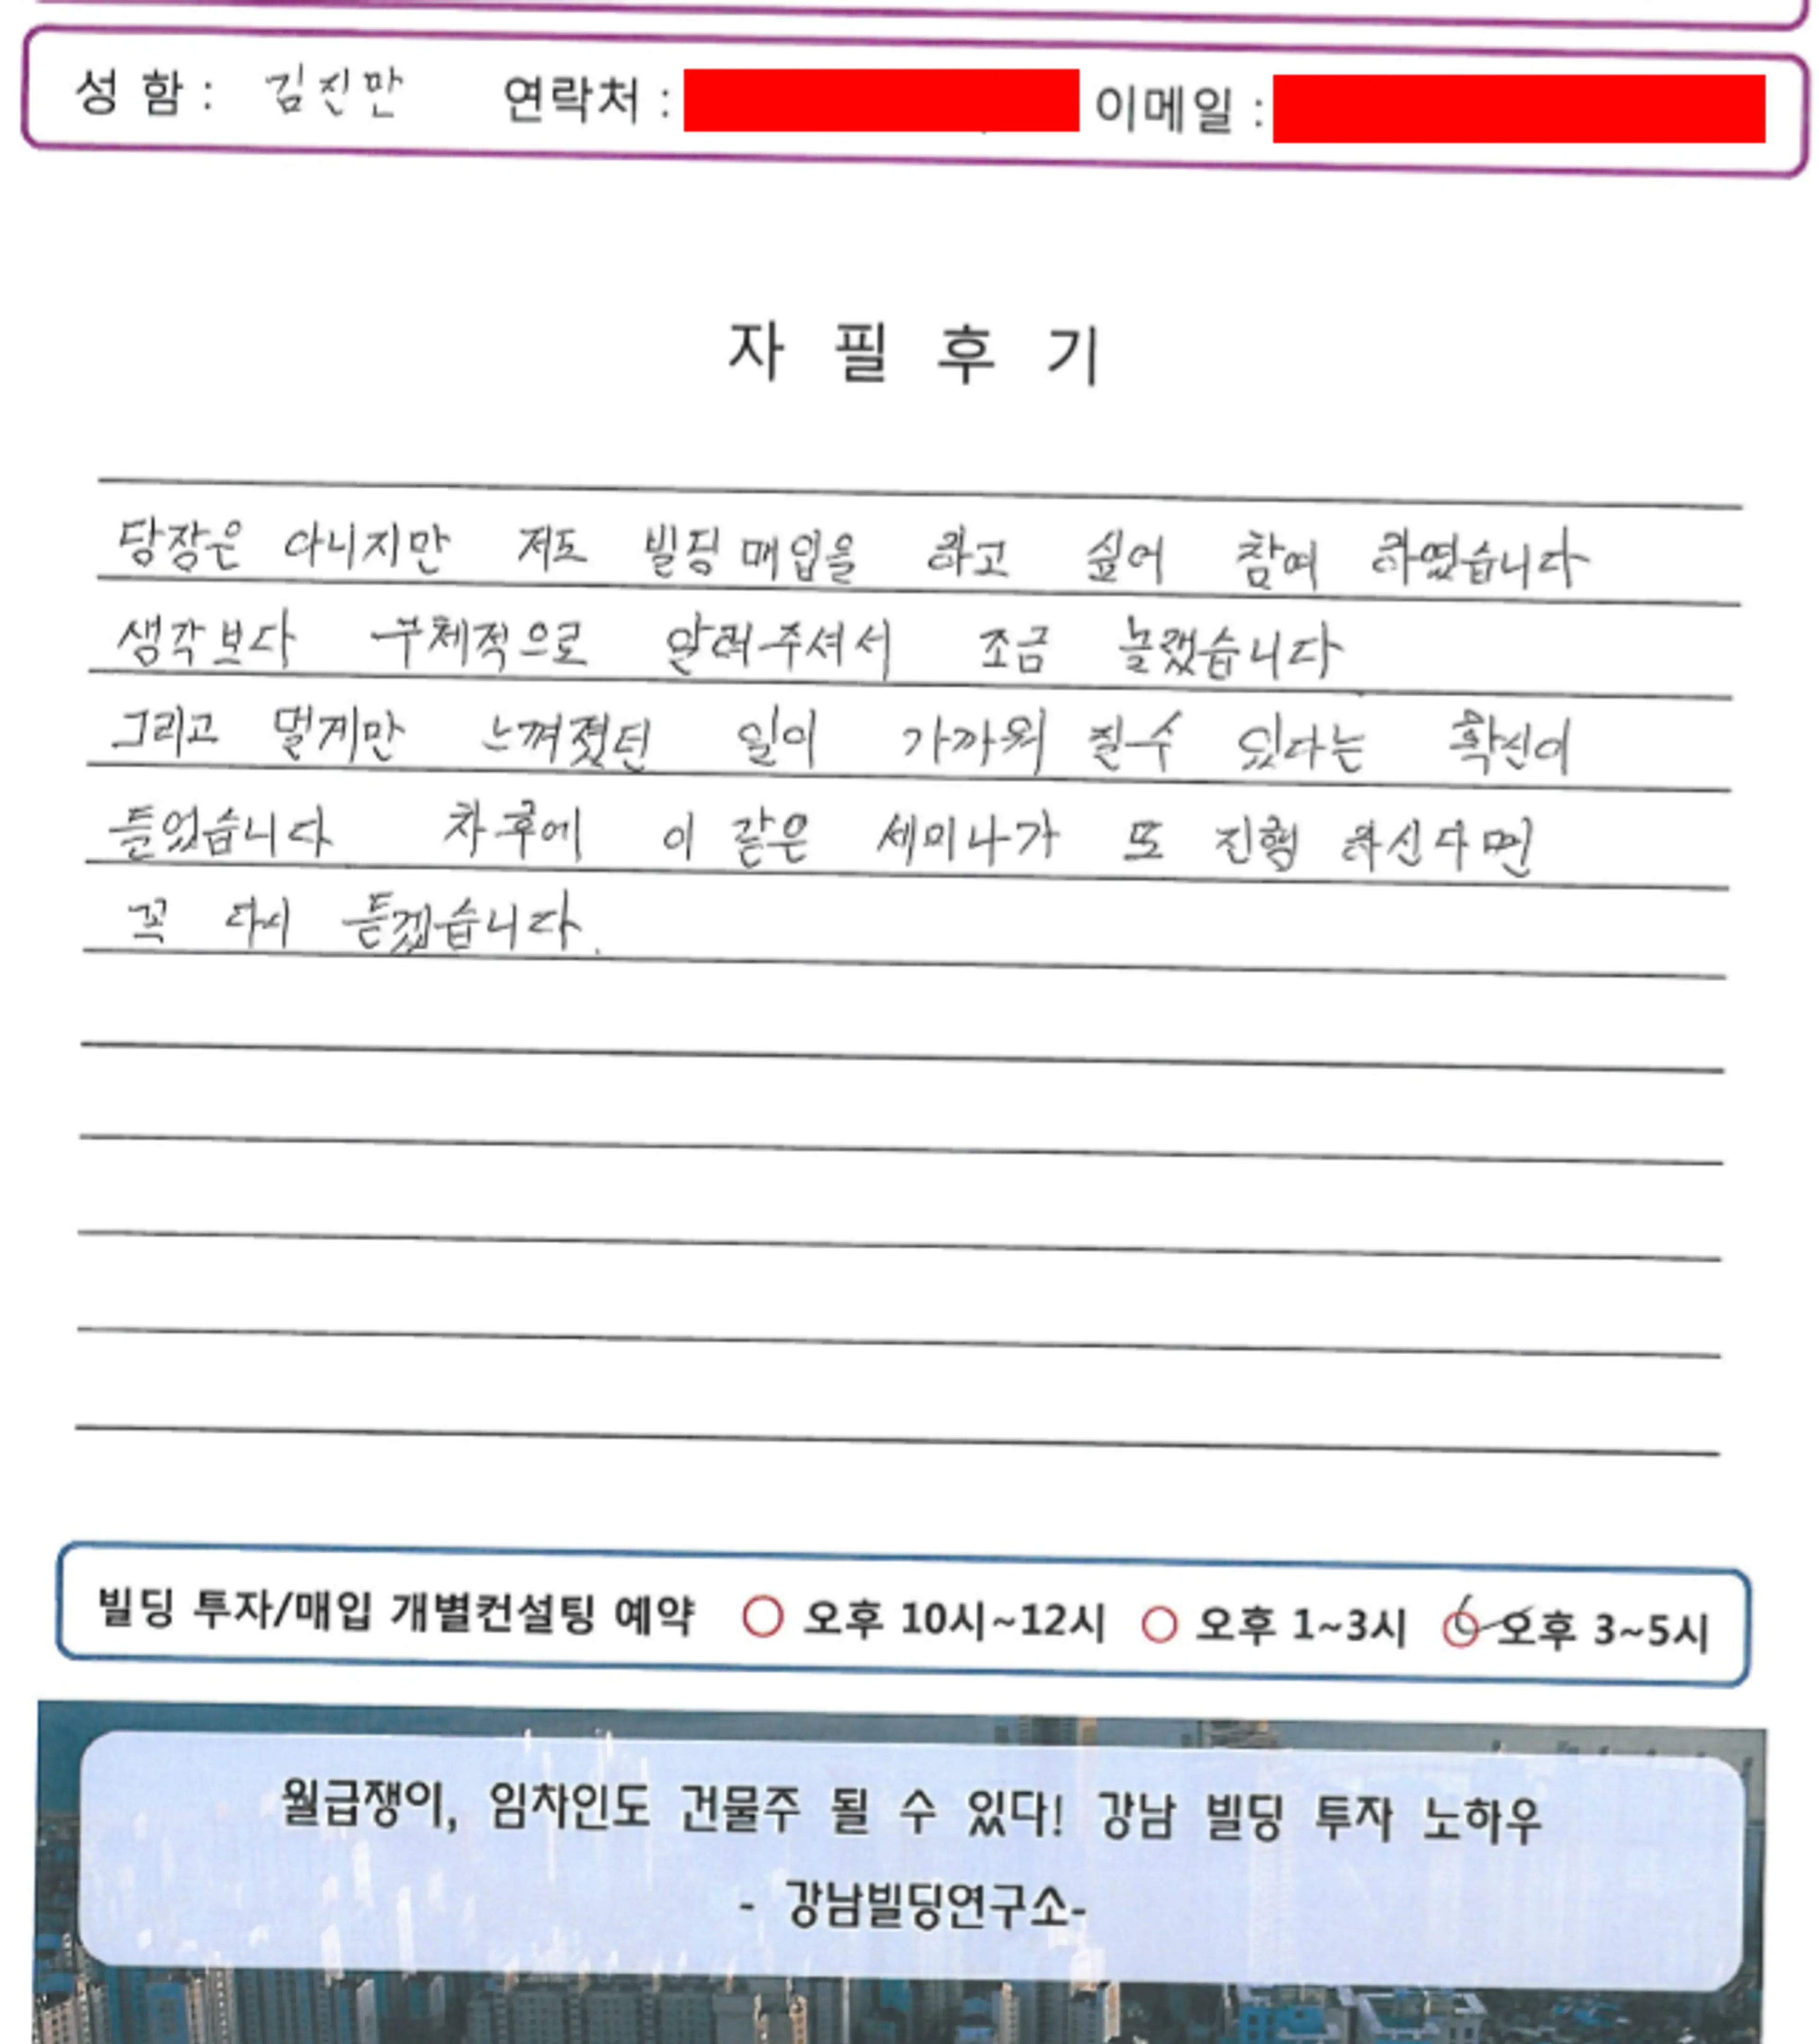 성 함 : 김진만 연락처 : 이메일 :
자 필 후 기
당장은 아니지만 저도 빌딩 매입을 하고 싶어 참여 하였습니다
생각보다 구체적으로 알려주셔서 조금 놀랬습니다
그리고 멀게만 느껴졌던 일이 가까워 질수 있다는 확신이
들었습니다 차후에 이 같은 세미나가 또 진행 하신다면
꼭 다시 듣겠습니다.
빌딩 투자/매입 개별컨설팅 예약 오후 10시~12시 오후 1~3시 오후 3~5시
월급쟁이, 임차인도 건물주 될 수 있다! 강남 빌딩 투자 노하우
- 강남빌딩연구소-